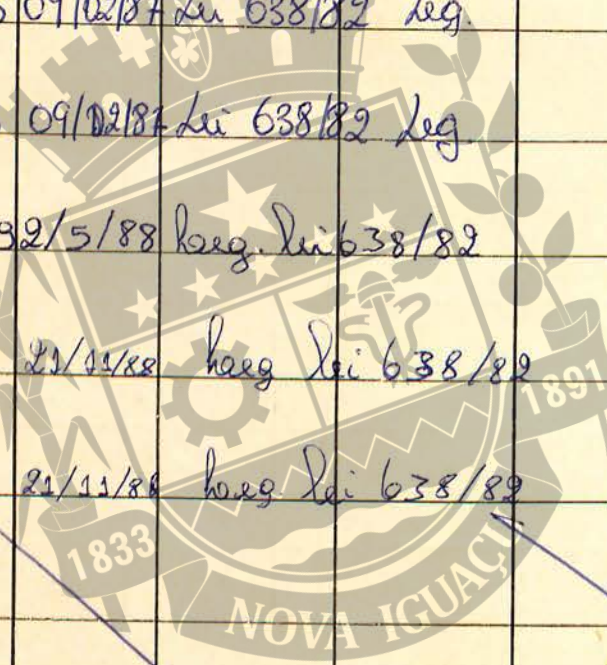 09/02/87 Lei 638/82 Leg.
09/02/87 Lei 638/82 Leg
2/5/88 Lei 638/82
21/11/88 Lei 638/82
21/11/88 Lei 638/82
1891
1833
NOVA IGUAÇU